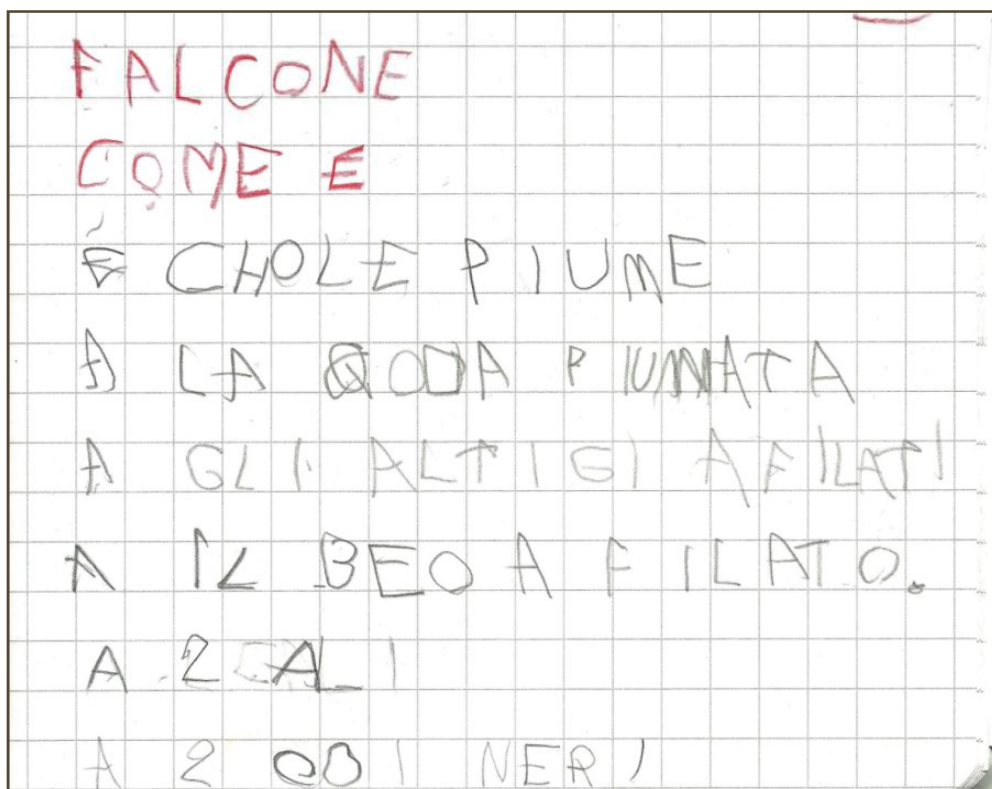 FALCONE
COME È
È CHOLE PIUME
A LA QODA PIUMATA
A GLI ALTIGI AFILATI
A IL BEO AFILATO.
A 2 ALI
A 2 OOI NERI